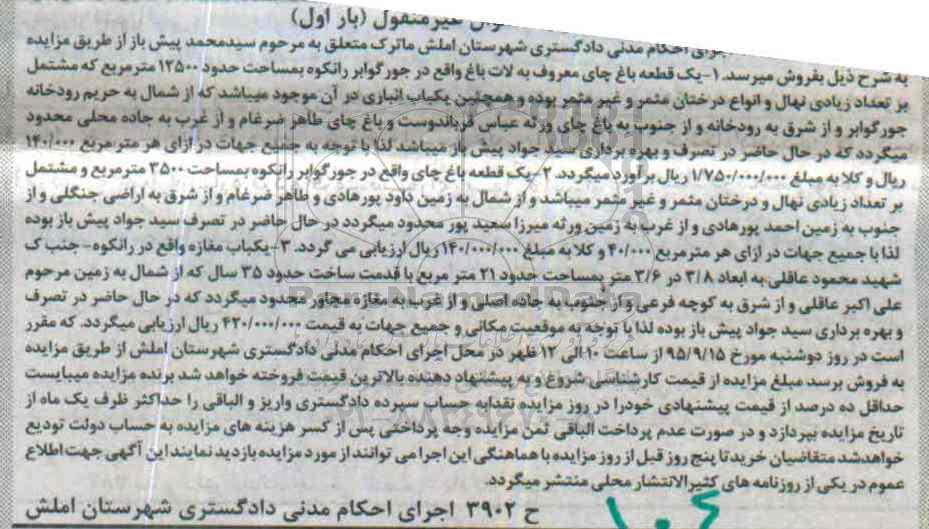 غیرمنقول (بار اول)
اجرای احکام مدنی دادگستری شهرستان املش ماترک متعلق به مرحوم سیدمحمد پیش باز از طریق مزایده
به شرح ذیل بفروش میرسد. ۱-یک قطعه باغ چای معروف به لات باغ واقع در جورگوابر رانکوه بمساحت حدود ۱۲۵۰۰ مترمربع که مشتمل
بر تعداد زیادی نهال و انواع درختان مثمر و غیر مثمر بوده و همچنین یکباب انباری در آن موجود میباشد که از شمال به حریم رودخانه
جورگوابر و از شرق به رودخانه و از جنوب به باغ چای ورثه عباس قرباندوست و باغ چای طاهر ضرغام و از غرب به جاده محلی محدود
میگردد که در حال حاضر در تصرف و بهره برداری سید جواد پیش باز میباشد لذا با توجه به جمیع جهات در ازای هر متر مربع ۱۴۰/۰۰۰
ریال و کلا به مبلغ ۱/۷۵۰/۰۰۰/۰۰۰ ریال برآورد میگردد. ۲-یک قطعه باغ چای واقع در جورگوابر رانکوه بمساحت ۳۵۰۰ مترمربع و مشتمل
بر تعداد زیادی نهال و درختان مثمر و غیر مثمر میباشد و از شمال به زمین داود پورهادی و طاهر ضرغام و از شرق به اراضی جنگلی و از
جنوب به زمین احمد پورهادی و از غرب به زمین ورثه میرزا سعید پور محدود میگردد در حال حاضر در تصرف سید جواد پیش باز بوده
لذا با جمیع جهات در ازای هر مترمربع ۴۰/۰۰۰ و کلا به مبلغ ۱۴۰/۰۰۰/۰۰۰ ریال ارزیابی می گردد. ۳-یکباب مغازه واقع در رانکوه- جنب ک
شهید محمود عاقلی به ابعاد ۳/۸ در ۳/۶ متر بمساحت حدود ۲۱ متر مربع با قدمت ساخت حدود ۳۵ سال که از شمال به زمین مرحوم
علی اکبر عاقلی و از شرق به کوچه فرعی و از جنوب به جاده اصلی و از غرب به مغازه مجاور محدود میگردد که در حال حاضر در تصرف
و بهره برداری سید جواد پیش باز بوده لذا با توجه به موقعیت مکانی و جمیع جهات به قیمت ۴۲۰/۰۰۰/۰۰۰ ریال ارزیابی میگردد. که مقرر
است در روز دوشنبه مورخ ۹۵/۹/۱۵ از ساعت ۱۰ الی ۱۲ ظهر در محل اجرای احکام مدنی دادگستری شهرستان املش از طریق مزایده
به فروش برسد مبلغ مزایده از قیمت کارشناسی شروع و به پیشنهاد دهنده بالاترین قیمت فروخته خواهد شد برنده مزایده میبایست
حداقل ده درصد از قیمت پیشنهادی خودرا در روز مزایده نقدابه حساب سپرده دادگستری واریز و الباقی را حداکثر ظرف یک ماه از
تاریخ مزایده بپردازد و در صورت عدم پرداخت الباقی ثمن مزایده وجه پرداختی پس از کسر هزینه های مزایده به حساب دولت تودیع
خواهدشد متقاضیان خرید تا پنج روز قبل از روز مزایده با هماهنگی این اجرا می توانند از مورد مزایده بازدید نمایند این آگهی جهت اطلاع
عموم در یکی از روزنامه های کثیرالانتشار محلی منتشر میگردد.
ح ۳۹۰۲ اجرای احکام مدنی دادگستری شهرستان املش
۱۰۶